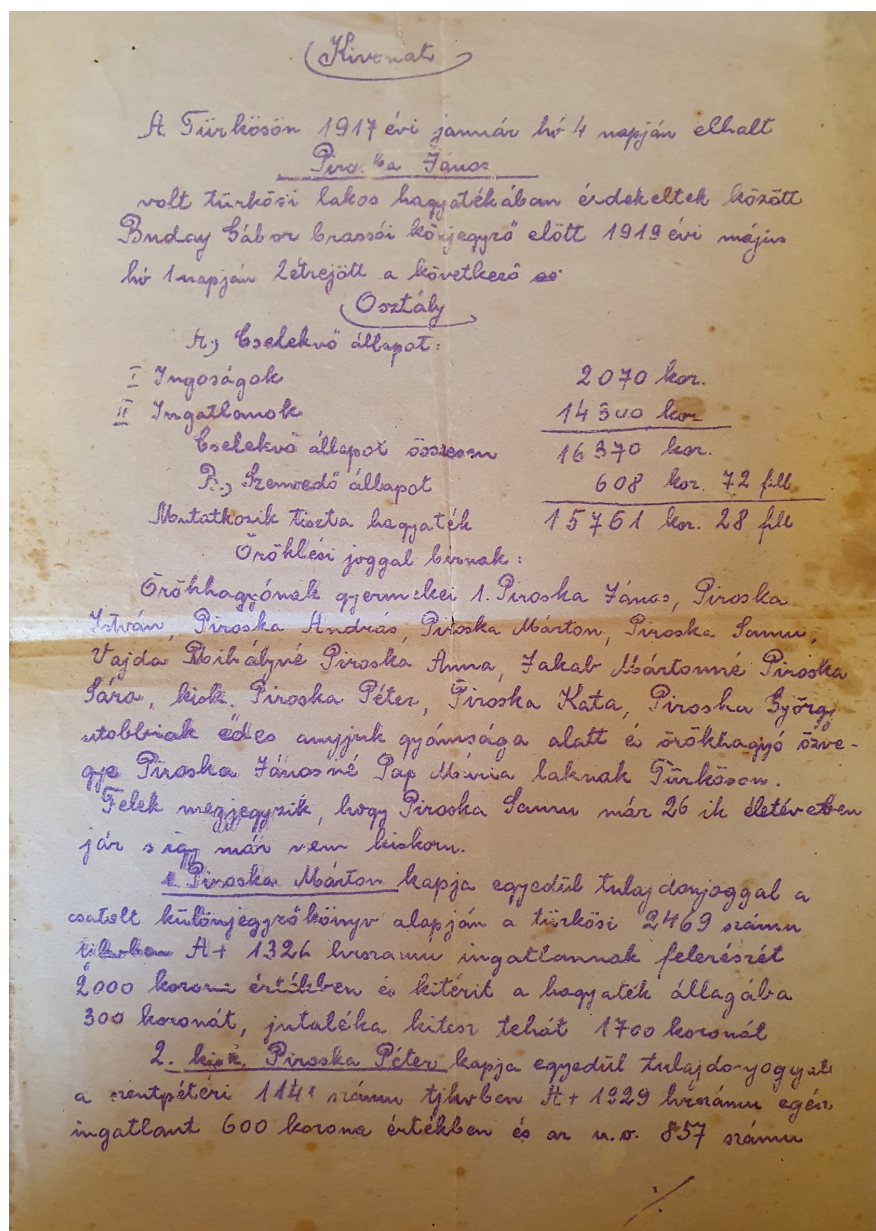 Kivonat
A Türkösön 1917 évi január hó 4 napján elhalt
Piroska János
volt türkösi lakos hagyatékában érdekeltek között
Buday Gábor brassói közjegyző előtt 1919 évi május
hó 1 napján létrejött a következő
Osztály
A., Cselekvő állapot:
I Ingoságok 2070 kor.
II Ingatlanok 14300 kor
Cselekvő állapot összesen 16370 kor.
B., Szenvedő állapot 608 kor. 72 fill
Mutatkozik tiszta hagyaték 15761 kor. 28 fill
Öröklési joggal birnak:
Örökhagyónak gyermekei 1. Piroska János, Piroska
István, Piroska András, Piroska Márton, Piroska Samu,
Vajda Mihályné Piroska Anna, Jakab Mártonné Piroska
Sára, kisk. Piroska Péter, Piroska Kata, Piroska György
utobbiak édes anyjuk gyámsága alatt és örökhagyó özve-
gye Piroska Jánosné Pap Mária laknak Türkösön.
Felek megjegyzik, hogy Piroska Samu már 26 ik életévében
jár s így már nem kiskoru.
1. Piroska Márton kapja egyedül tulajdonjoggal a
csatolt különjegyzőkönyv alapján a türkösi 2469 számu
tjkvben A+ 1326 hrszamú ingatlannak felerészét
2000 korona értékben és kitérit a hagyaték állagába
300 koronát, jutaléka kitesz tehát 1700 koronát
2. kisk. Piroska Péter kapja egyedül tulajdonjoggal
a szentpéteri számu tjkvben A+ 1929 hrszámu egész
ingatlant 600 korona értékben és az u.o. 857 számu
./.